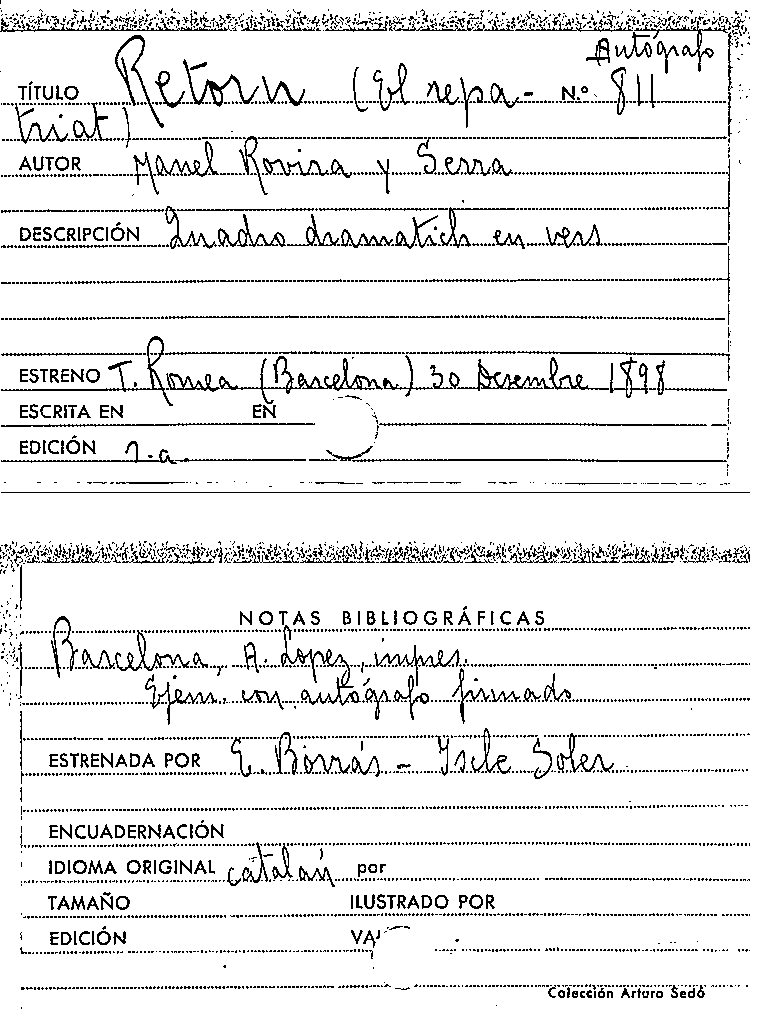 Autógrafo
TÍTULO Retorn (El repa- N.º 811
triat)
AUTOR Manel Rovira y Serra
DESCRIPCIÓN Quadro dramatich en vers
ESTRENO T. Romea (Barcelona) 30 Desembre 1898
ESCRITA EN EN
EDICIÓN 1.a
NOTAS BIBLIOGRÁFICAS
Barcelona, A. Lopez, impres.
Ejem. con autógrafo firmado
ESTRENADA POR E. Borrás - Iscle Soler
ENCUADERNACIÓN
IDIOMA ORIGINAL catalán por
TAMAÑO ILUSTRADO POR
EDICIÓN
Colección Arturo Sedó